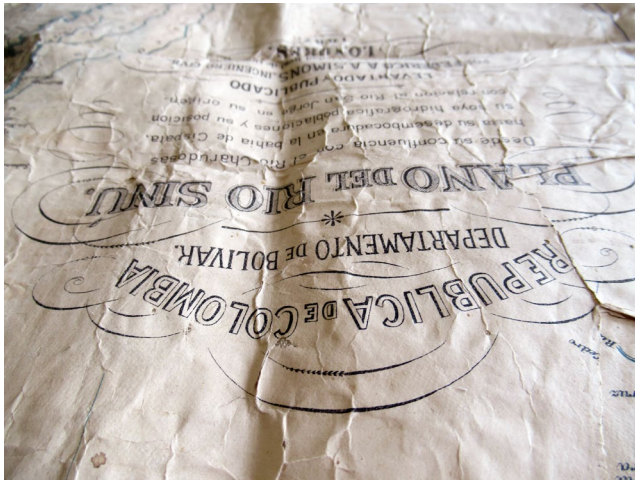 REPUBLICA DE COLOMBIA
DEPARTAMENTO DE BOLIVAR.
PLANO DEL RIO SINÚ.
Desde su confluencia con el Rio Charudosas
hasta su desembocadura en la bahia de Cispata.
Su hoya hidrografica poblaciones y su posicion
con relacion al Rio San Jorge en su origen.
LEVANTADO Y PUBLICADO
POR FEDERICO A. A. SIMONS, INGENIERO CIVIL
LONDRES.